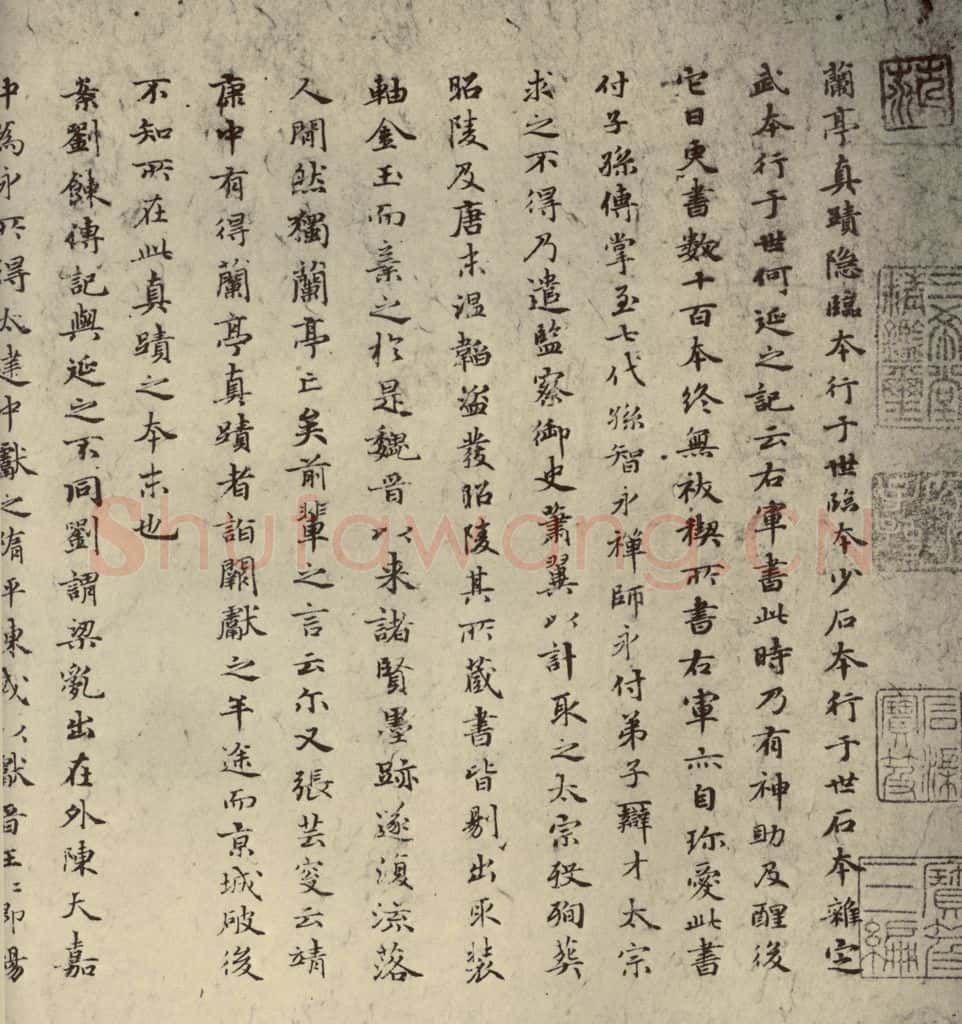 蘭亭真蹟隐臨本行于世臨本少石本行于世石本雜定
武本行于世何延之記云右軍書此時乃有神助及醒後
它日更書數十百本終無祓禊所書右軍亦自珎愛此書
付子孫傳掌至七代孫智永禅師永付弟子辯才太宗
求之不得乃遣監察御史蕭翼以計取之太宗殁殉葬
昭陵及唐末温韜盗發昭陵其所蔵書皆剔出取装
軸金玉而棄之於是魏晋以来諸賢墨跡遂復流落
人間然獨蘭亭亡矣前輩之言云尔又張芸叟云靖
康中有得蘭亭真蹟者詣闕獻之半途而京城破後
不知所在此真蹟之本末也
案劉餗傳記與延之不同劉謂梁亂出在外陳天嘉
中為永所得太建中獻之隋平東或以獻晋王〻即煬
三希堂精鑑璽
宜子孫
石渠寶笈
寶笈三編
Shufawang.CN